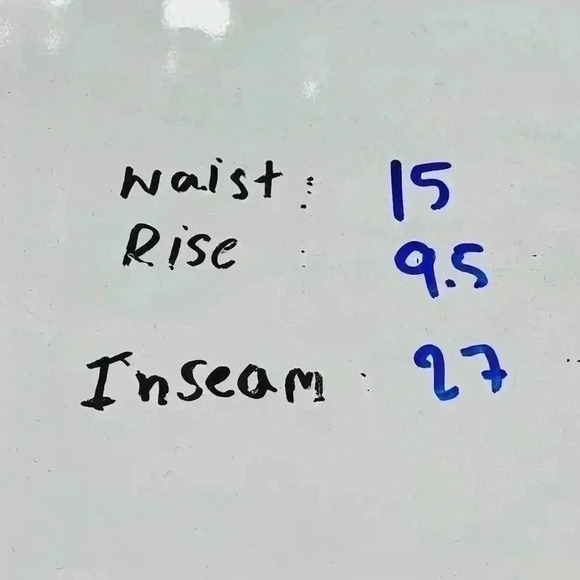 Waist: 15
Rise : 9.5
Inseam : 27